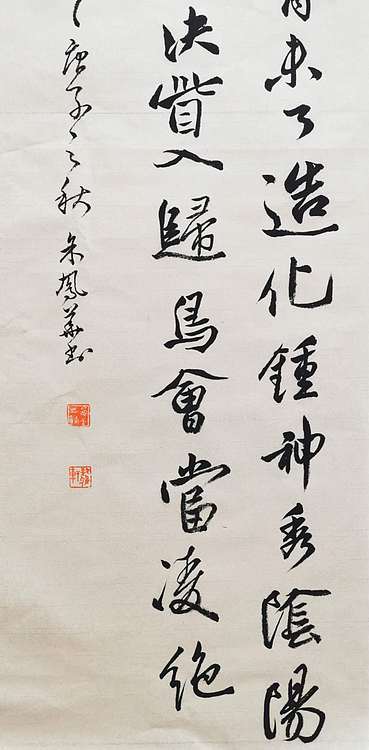 未了造化鍾神秀陰陽
決眥入歸鳥會當凌絕
庚子之秋朱鳳華書